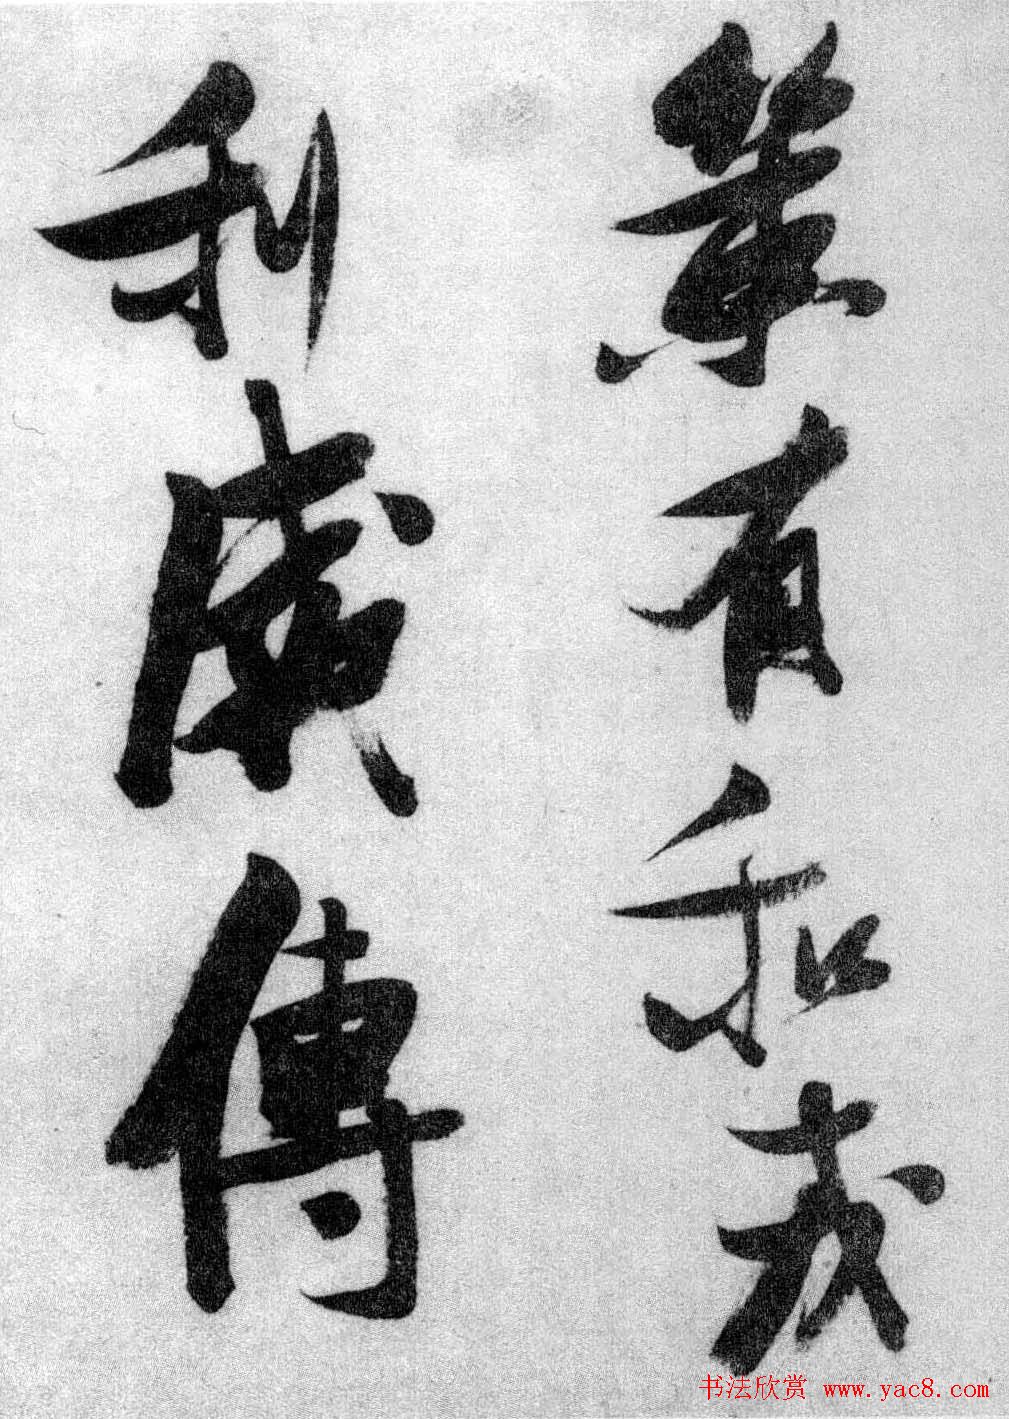 業有和戎
利威傳
书法欣赏 www.yac8.com